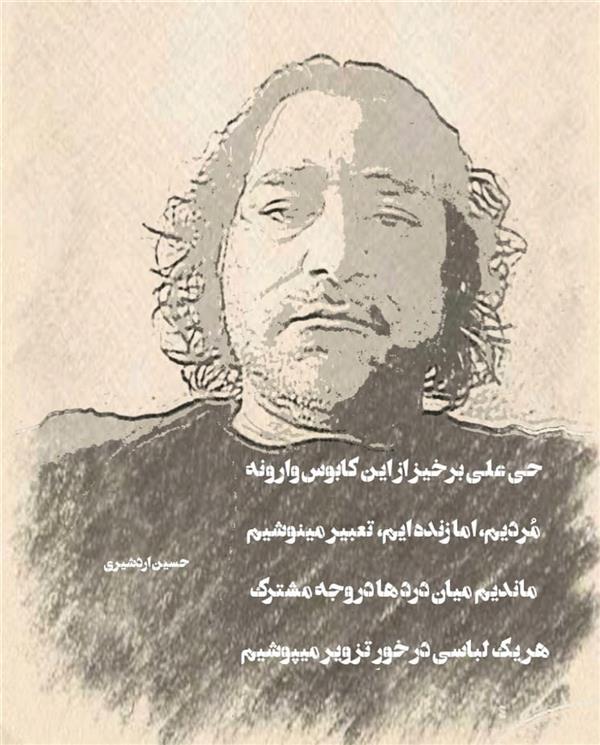 حی علی برخیز از این کابوس وارونه
مُردیم، اما زنده ایم، تعبیر مینوشیم
ماندیم میان درد ها در وجه مشترک
هر یک لباسی در خورِ تزویر میپوشیم
حسین اردشیری